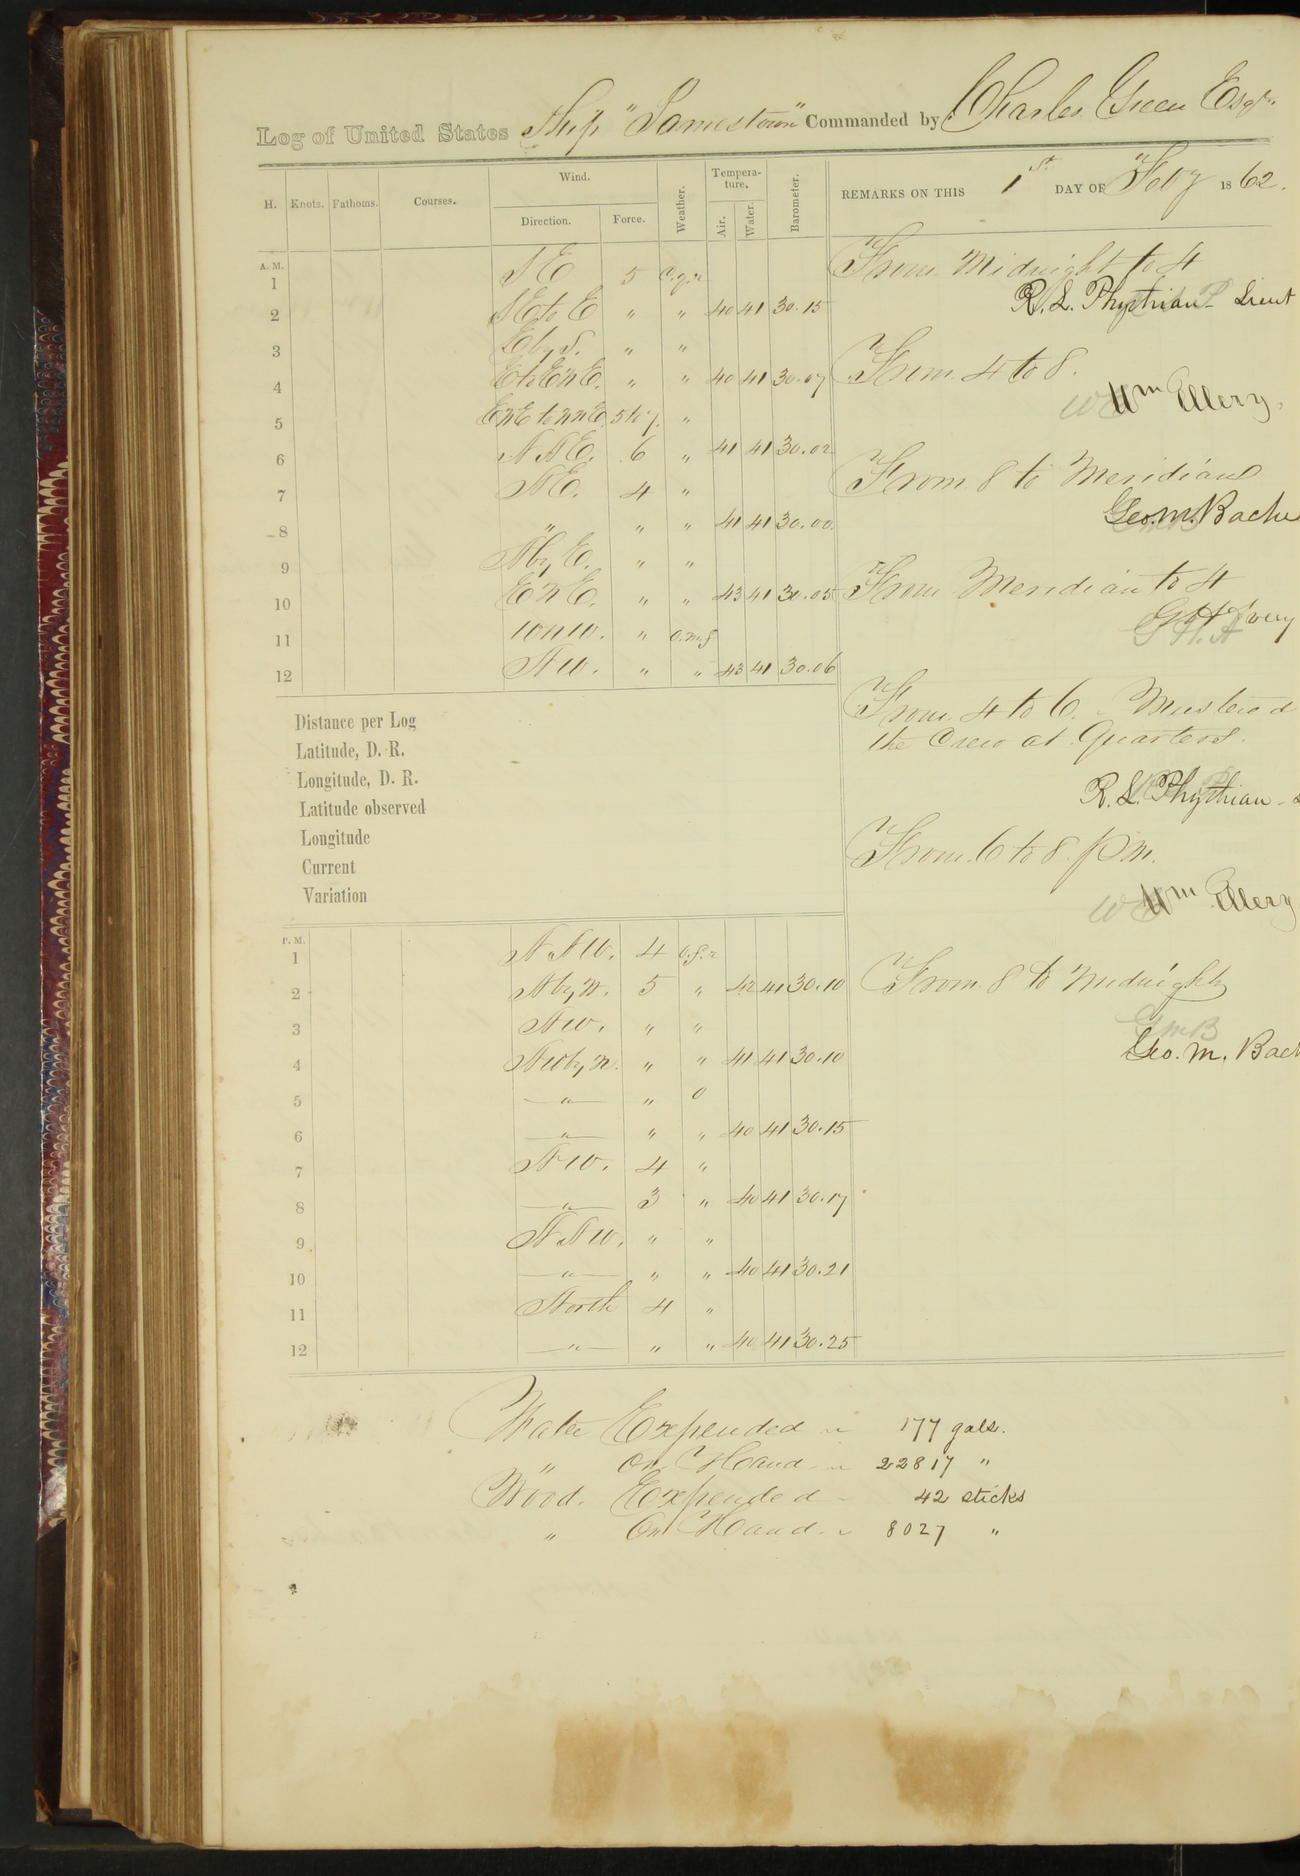 Log of United States Ship "Jamestown" Commanded by Charles Green Esqr.
H. Knots. Fathoms. Courses. Wind. Direction. Force. Weather. Tempera-ture. Air. Water. Barometer.
REMARKS ON THIS 1st DAY OF Feby 1862.
A. M.
1 S E 5
2 S E to E " " 40 41 30.15
3 E by S. " "
4 E to E N E. " " 40 41 30.07
5 E N E to N N E. 5 to 7. "
6 N N E. 6 " 41 41 30.02
7 N E. 4 "
8 " " " 41 41 30.00
9 N by E. " "
10 E N E. " " 43 41 30.05
11 W N W. " o.m.f
12 N W. " " 43 41 30.06
Distance per Log
Latitude, D. R.
Longitude, D. R.
Latitude observed
Longitude
Current
Variation
P. M.
1 N. N W. 4 o.f.r
2 5 " 42 41 30.10
3 N W. " "
4 N W by N. " " 41 41 30.10
5 " " o
6 " " " 40 41 30.15
7 N W. 4 "
8 " 3 " 40 41 30.17
9 N. N W. " "
10 " " " 40 41 30.21
11 North 4 "
12 " " " 40 41 30.25
From Midnight to 4
R. L. Phythian - Lieut
From 4 to 8.
Wm Ellery.
From 8 to Meridian
Geo. M. Bache
From Meridian to 4
G H A
From 4 to 6. Mustered
the Crew at Quarters.
R. L. Phythian -
From 6 to 8 p m.
Wm Ellery
From 8 to Midnight
G M B
Geo. M. Bach
Water Expended 177 gals.
" On Hand 22817 "
Wood. Expended 42 sticks
" On Hand 8027 "